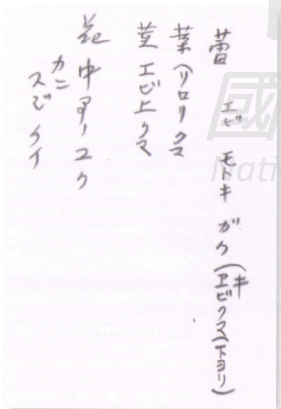 蕾 エビ モトキ ガク(キ
(エビクマ(下ヨリ)
葉(リロリクマ
茎 エビ上クマ
花 中アノユク
カニ
スジ クイ
國
Nati